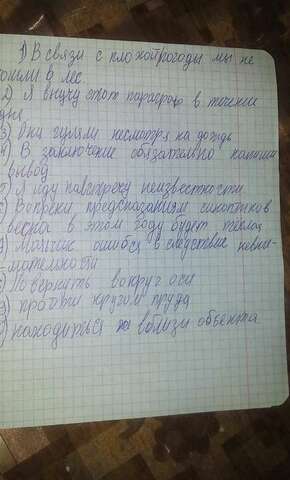 1) В связи с плохой погоды мы не
пошли в лес.
2) Я выучу этот параграф в течении
дня
3) Они гуляли несмотря на дождь
4) В заключение обязательно напиши
вывод
5) Я иду навстречу неизвестности
6) Вопреки предсказаниям синоптиков
весна в этом году будет тёплая
7) Мальчик ошибся в следствие невни-
-мательности
повернить вокруг оси
пройти кругом пруда
находиться вблизи объекта